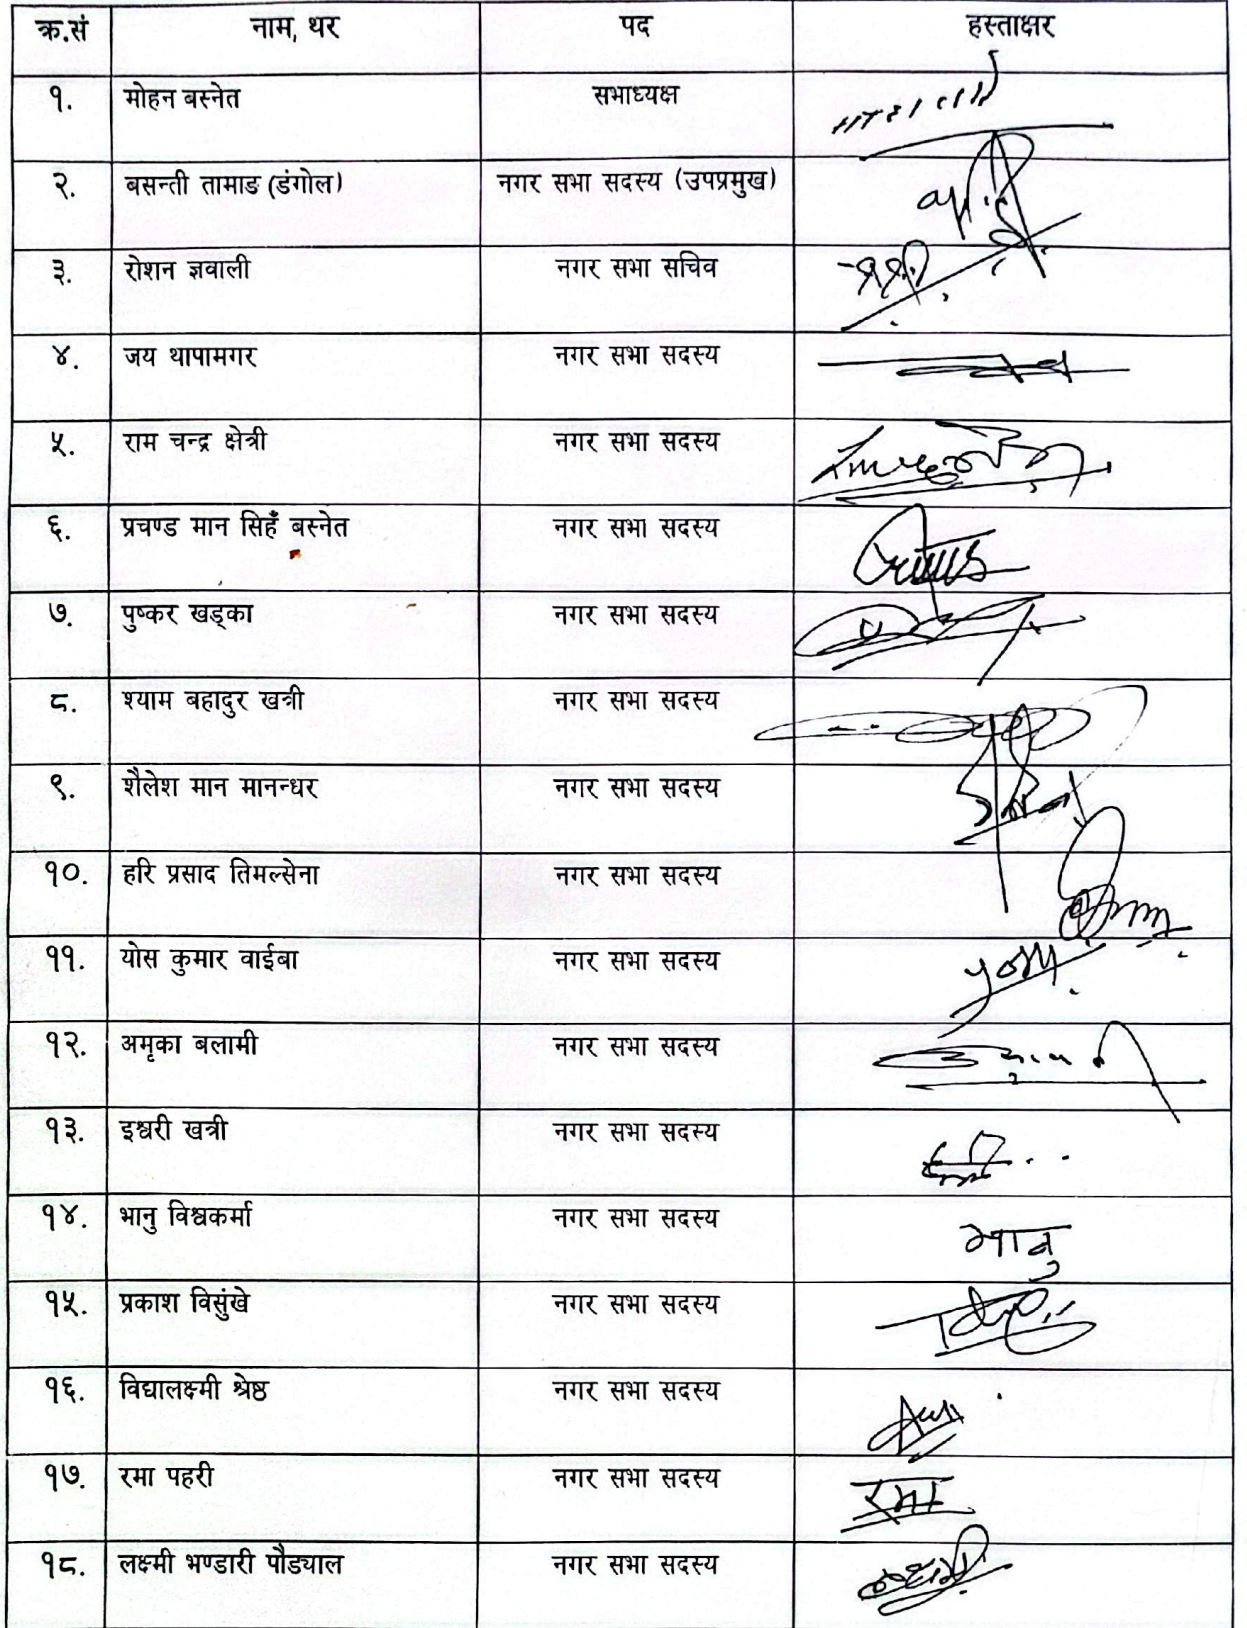 क्र.सं नाम, थर पद हस्ताक्षर
१. मोहन बस्नेत सभाध्यक्ष
२. बसन्ती तामाङ (डंगोल) नगर सभा सदस्य (उपप्रमुख)
३. रोशन ज्ञवाली नगर सभा सचिव
४. जय थापामगर नगर सभा सदस्य
५. राम चन्द्र क्षेत्री नगर सभा सदस्य
६. प्रचण्ड मान सिहँ बस्नेत नगर सभा सदस्य
७. पुष्कर खड्का नगर सभा सदस्य
८. श्याम बहादुर खत्री नगर सभा सदस्य
९. शैलेश मान मानन्धर नगर सभा सदस्य
१०. हरि प्रसाद तिमल्सेना नगर सभा सदस्य
११. योस कुमार वाईबा नगर सभा सदस्य
१२. अमृका बलामी नगर सभा सदस्य
१३. इश्वरी खत्री नगर सभा सदस्य
१४. भानु विश्वकर्मा नगर सभा सदस्य भानु
१५. प्रकाश विसुंखे नगर सभा सदस्य
१६. विद्यालक्ष्मी श्रेष्ठ नगर सभा सदस्य
१७. रमा पहरी नगर सभा सदस्य रमा
१८. लक्ष्मी भण्डारी पौड्याल नगर सभा सदस्य